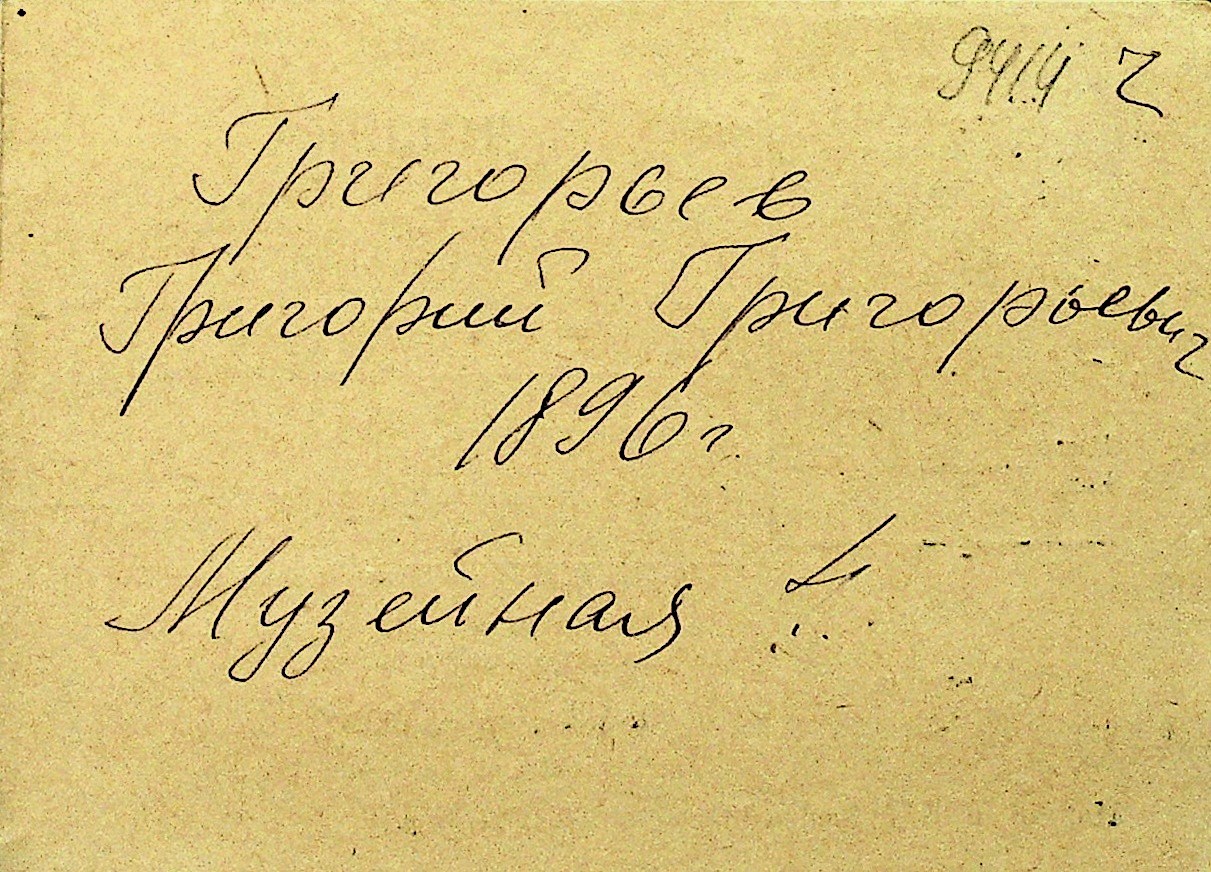 Григорьев
Григорий Григорьевич
1896 г.
Музейная